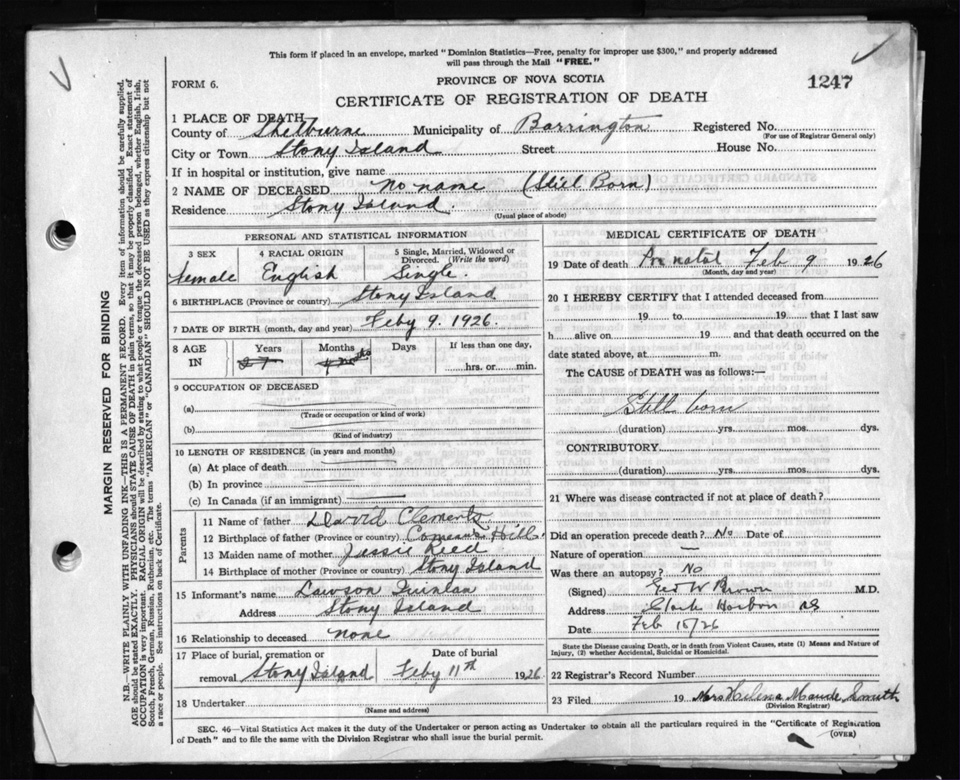 This form if placed in an envelope, marked "Dominion Statistics—Free, penalty for improper use $300," and properly addressed
will pass through the Mail "FREE."
FORM 6.
PROVINCE OF NOVA SCOTIA
1247
CERTIFICATE OF REGISTRATION OF DEATH
1 PLACE OF DEATH
County of Shelburne Municipality of Barrington Registered No.
(For use of Registrar General only)
City or Town Stony Island Street House No.
If in hospital or institution, give name
2 NAME OF DECEASED No name (Stiel Born)
Residence Stony Island.
(Usual place of abode)
PERSONAL AND STATISTICAL INFORMATION
3 SEX 4 RACIAL ORIGIN 5 Single, Married, Widowed or
Divorced. (Write the word)
Female English Single.
6 BIRTHPLACE (Province or country) Stony Island
7 DATE OF BIRTH (month, day and year) Feby 9. 1926.
8 AGE IN Years Months Days If less than one day,
hrs. or min.
9 OCCUPATION OF DECEASED
(a)
(Trade or occupation or kind of work)
(b)
(Kind of industry)
10 LENGTH OF RESIDENCE (in years and months)
(a) At place of death
(b) In province
(c) In Canada (if an immigrant)
Parents
11 Name of father David Clements
12 Birthplace of father (Province or country) Comeau's Hill
13 Maiden name of mother Jessie Reed
14 Birthplace of mother (Province or country) Stony Island
15 Informant's name Lawson Quinlan
Address Stony Island
16 Relationship to deceased none
17 Place of burial, cremation or Date of burial
removal Stony Island Feby 11th 1926
18 Undertaker
(Name and address)
MEDICAL CERTIFICATE OF DEATH
19 Date of death Pre natal Feb 9 1926
(Month, day and year)
20 I HEREBY CERTIFY that I attended deceased from
19 to 19 that I last saw
h alive on 19 and that death occurred on the
date stated above, at m.
The CAUSE of DEATH was as follows:—
Still born
(duration) yrs. mos. dys.
CONTRIBUTORY
(duration) yrs. mos. dys.
21 Where was disease contracted if not at place of death?
Did an operation precede death? No Date of
Nature of operation —
Was there an autopsy? No
(Signed) W Brown M.D.
Address Clark Harbor NS
Date Feb 15/26
State the Disease causing Death, or in death from Violent Causes, state (1) Means and Nature of
Injury, (2) whether Accidental, Suicidal or Homicidal.
22 Registrar's Record Number
23 Filed 19 Mrs Helena Maude Smith
(Division Registrar)
SEC. 46—Vital Statistics Act makes it the duty of the Undertaker or person acting as Undertaker to obtain all the particulars required in the "Certificate of Registration
of Death" and to file the same with the Division Registrar who shall issue the burial permit.
(OVER)
MARGIN RESERVED FOR BINDING
N.B.—WRITE PLAINLY WITH UNFADING INK—THIS IS A PERMANENT RECORD. Every item of information should be carefully supplied.
AGE should be stated EXACTLY. PHYSICIANS should STATE CAUSE OF DEATH in plain terms, so that it may be properly classified. Exact statement of
OCCUPATION is very important. RACIAL ORIGIN will be described by stating to what people or tongue the deceased person belonged, whether English, Irish,
Scotch, French, German, Russian, Ruthenian, etc. The terms "AMERICAN" or "CANADIAN" SHOULD NOT BE USED as they express citizenship but not
a race or people. See instructions on back of Certificate.